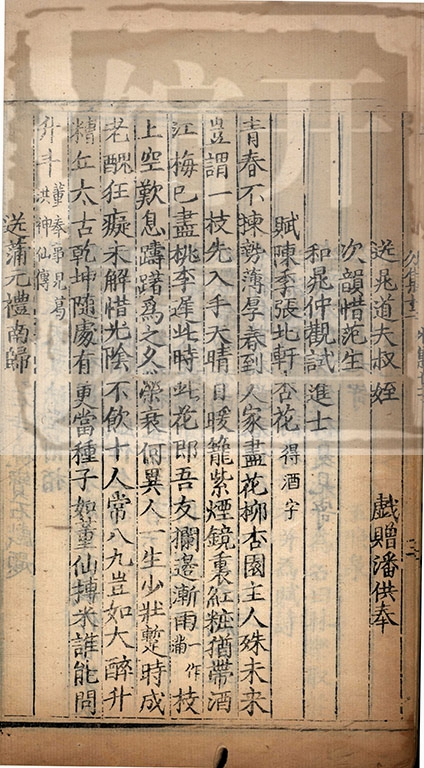 送晁道夫叔姪　戲贈潘供奉
次韻惜范生
和晁仲觀試進士
賦陳季張北軒杏花得酒字
青春不揀勢薄厚春到人家盡花柳杏園主人殊未來
豈謂一枝先入手天晴日暖籠紫煙鏡裏紅粧猶帶酒
江梅已盡桃李遲此時此花即吾友欄邊漸雨一作滿枝
上空歎息躊躇為之久榮衰何異人一生少壯暫時成
老醜狂癡未解惜光陰不飲十人常八九豈如大醉升
糟丘太古乾坤隨處有更當種子如董仙摶米誰能問
升斗董奉事見葛洪神仙傳
送蒲元禮南歸